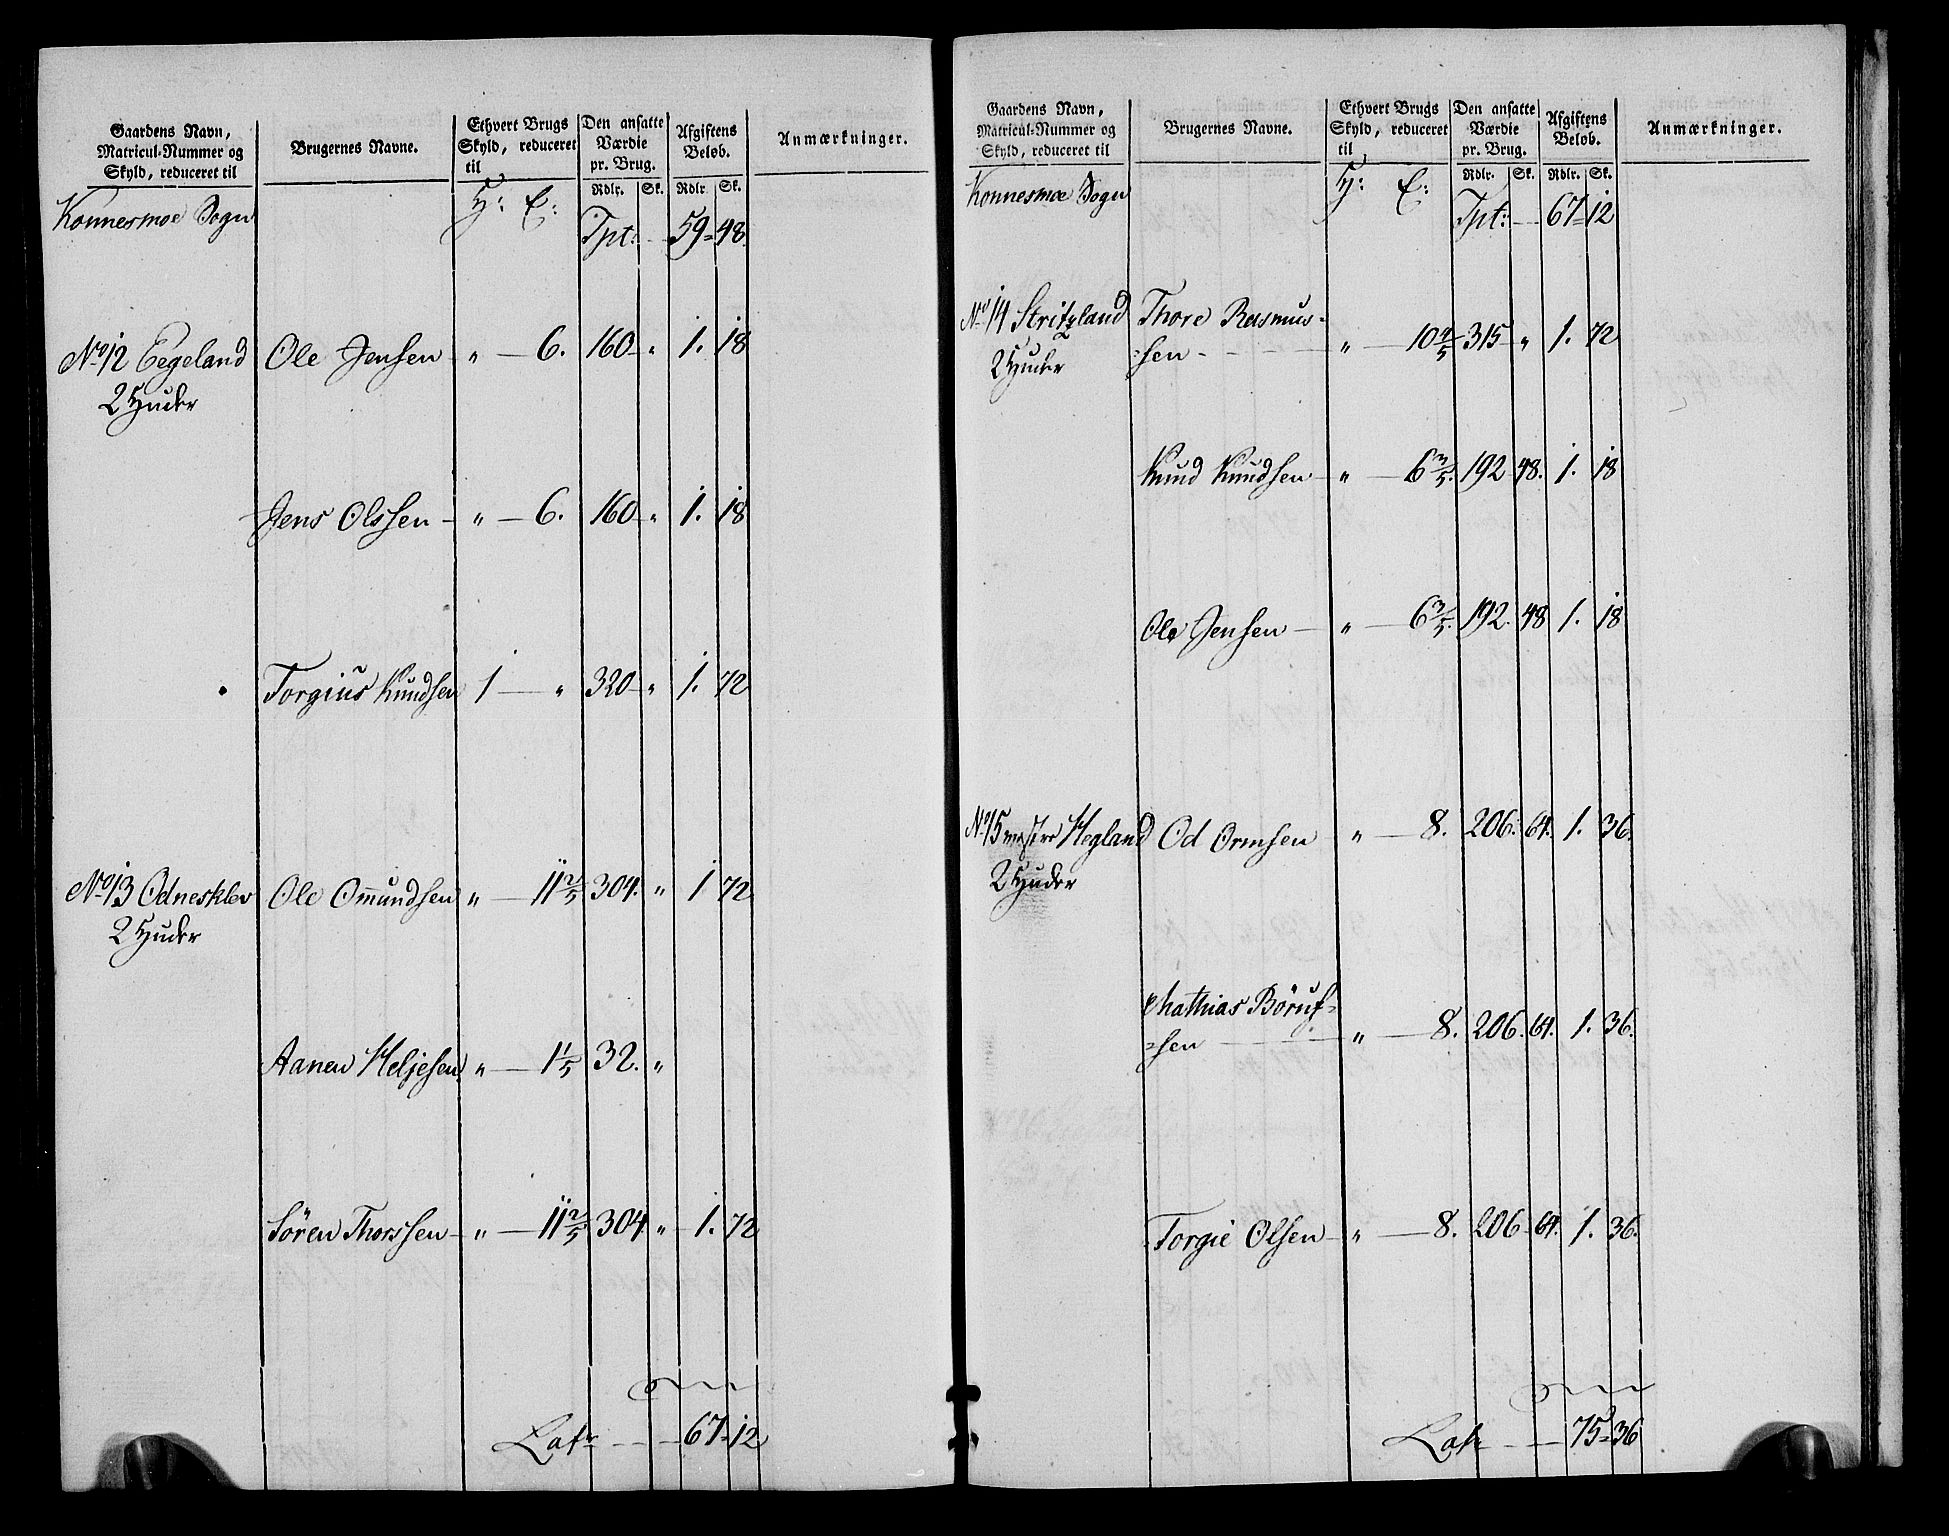 Gaardens Navn,
Matricul-Nummer og
Skyld, reduceret til
Brugernes Navne.
Ethvert Brugs
Skyld, reduceret
til
Den ansatte
Værdie
pr. Brug.
Afgiftens
Beløb.
Anmærkninger.
Rdlr. Sk. Rdlr. Sk.
Konnesmoe Sogn H: E: Tpt: 59 = 48.
No 12 Eegeland Ole Jensen " 6. 160 " 1. 18
2 Huder
Jens Olssen " 6. 160 " 1. 18
Torgius Knudsen 1 " 320 " 1. 72
No 13 Odnesklev Ole Omundsen " 11 2/5 304. " 1 72
2 Huder
Aanen Heljesen " 1 1/5 32. "
Sören Thorssen " 11 2/5 304 " 1. 72
Latr 67 = 12
Gaardens Navn,
Matricul-Nummer og
Skyld, reduceret til
Brugernes Navne.
Ethvert Brugs
Skyld, reduceret
til
Den ansatte
Værdie
pr. Brug.
Afgiftens
Beløb.
Anmærkninger.
Rdlr. Sk. Rdlr. Sk.
Konnesmoe Sogn H: E: Tpt: 67 = 12
No 14 Stritzland Thore Rasmus-
2 Huder =sen " 10 4/5 315 " 1. 72
Knud Knudsen " 6 3/5. 192 48. 1. 18
Ole Jensen " 6 3/5. 192. 48 1. 18
No 15 westre Hegland Od Ormsen " 8. 206. 64. 1. 36.
2 Huder
Mathias Böruf=
=sen " 8. 206. 64. 1. 36.
Torgie Olsen " 8. 206 64. 1. 36.
Latr 75 = 36